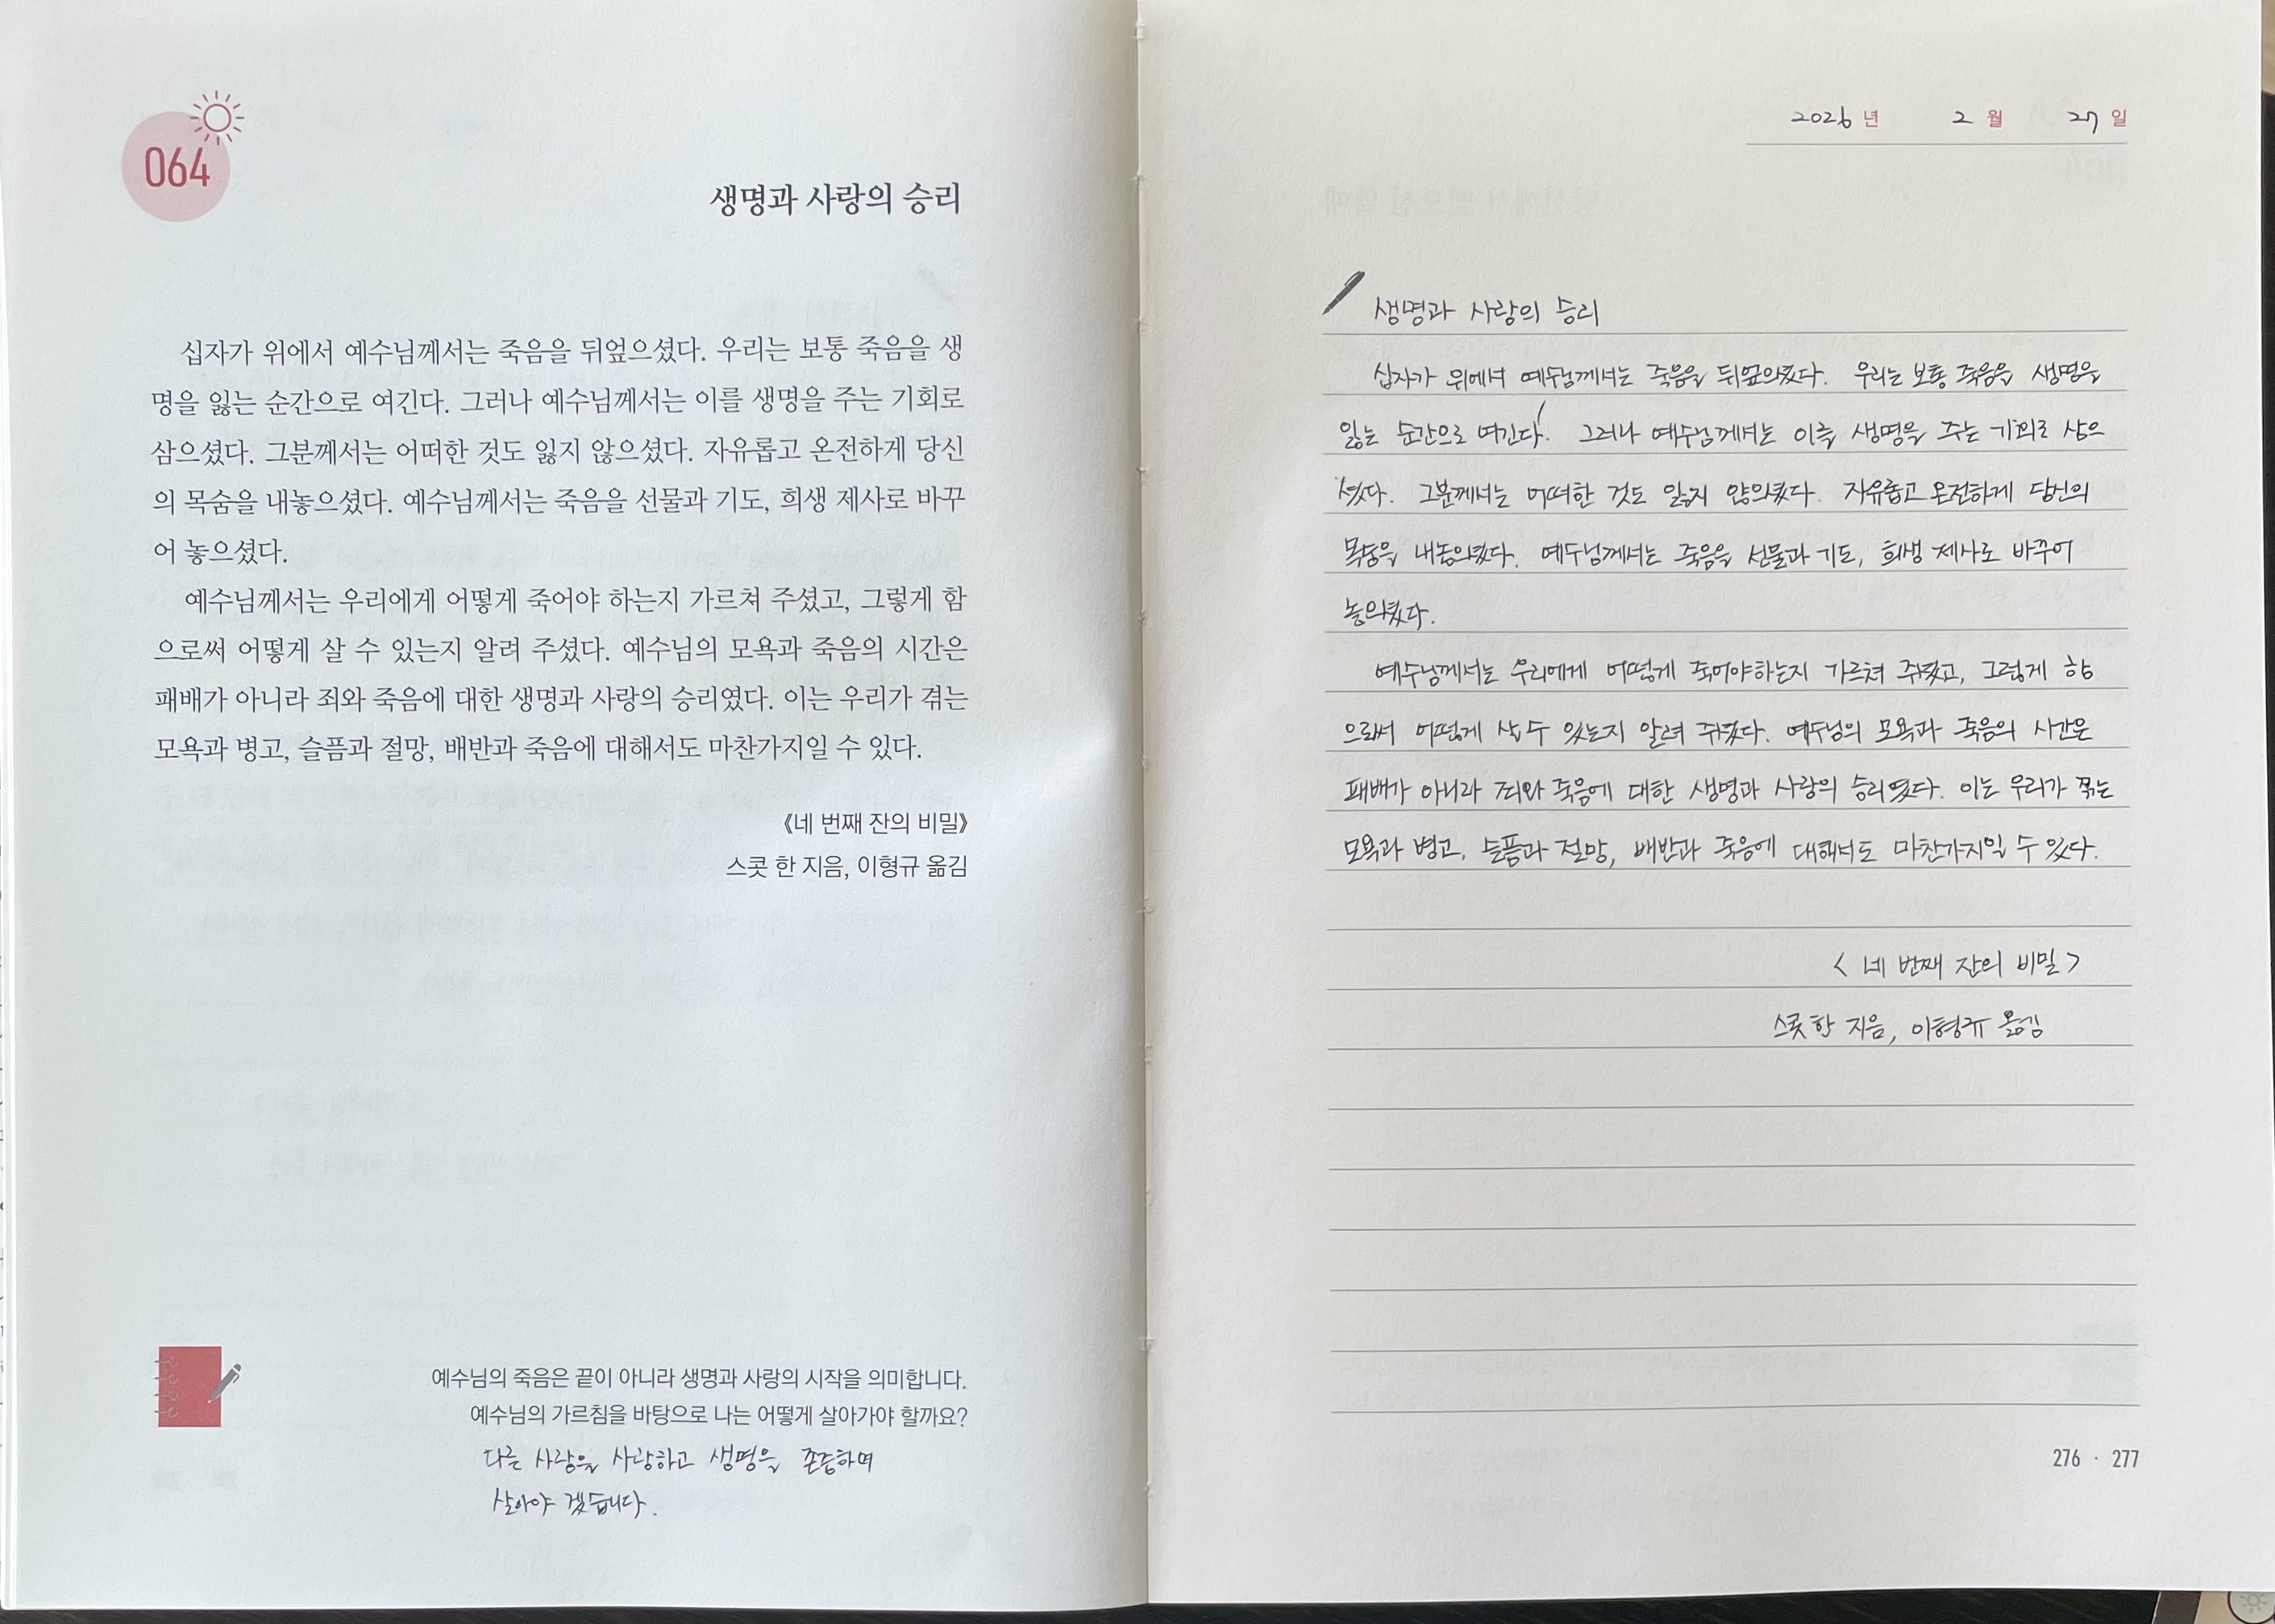 064
생명과 사랑의 승리
십자가 위에서 예수님께서는 죽음을 뒤엎으셨다. 우리는 보통 죽음을 생
명을 잃는 순간으로 여긴다. 그러나 예수님께서는 이를 생명을 주는 기회로
삼으셨다. 그분께서는 어떠한 것도 잃지 않으셨다. 자유롭고 온전하게 당신
의 목숨을 내놓으셨다. 예수님께서는 죽음을 선물과 기도, 희생 제사로 바꾸
어 놓으셨다.
예수님께서는 우리에게 어떻게 죽어야 하는지 가르쳐 주셨고, 그렇게 함
으로써 어떻게 살 수 있는지 알려 주셨다. 예수님의 모욕과 죽음의 시간은
패배가 아니라 죄와 죽음에 대한 생명과 사랑의 승리였다. 이는 우리가 겪는
모욕과 병고, 슬픔과 절망, 배반과 죽음에 대해서도 마찬가지일 수 있다.
《네 번째 잔의 비밀》
스콧 한 지음, 이형규 옮김
예수님의 죽음은 끝이 아니라 생명과 사랑의 시작을 의미합니다.
예수님의 가르침을 바탕으로 나는 어떻게 살아가야 할까요?
다른 사람을 사랑하고 생명을 존중하며
살아야 겠습니다.
2026 년 2 월 27 일
생명과 사랑의 승리
십자가 위에서 예수님께서는 죽음을 뒤엎으셨다. 우리는 보통 죽음을 생명을
잃는 순간으로 여긴다. 그러나 예수님께서는 이를 생명을 주는 기회로 삼으
셨다. 그분께서는 어떠한 것도 잃지 않으셨다. 자유롭고 온전하게 당신의
목숨을 내놓으셨다. 예수님께서는 죽음을 선물과 기도, 희생 제사로 바꾸어
놓으셨다.
예수님께서는 우리에게 어떻게 죽어야하는지 가르쳐 주셨고, 그렇게 함
으로써 어떻게 살 수 있는지 알려 주셨다. 예수님의 모욕과 죽음의 시간은
패배가 아니라 죄와 죽음에 대한 생명과 사랑의 승리였다. 이는 우리가 겪는
모욕과 병고, 슬픔과 절망, 배반과 죽음에 대해서도 마찬가지일 수 있다.
< 네 번째 잔의 비밀 >
스콧 한 지음, 이형규 옮김
276 · 277